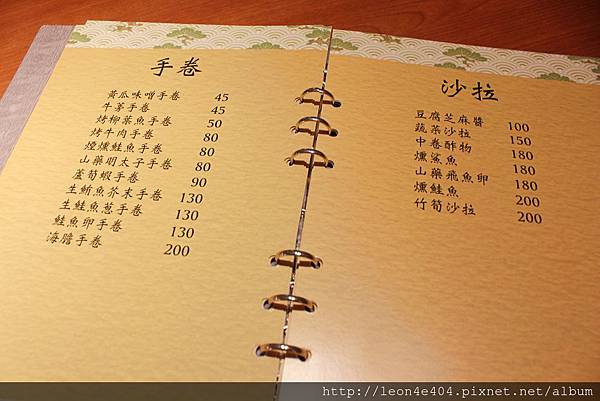 手卷
黃瓜味噌手卷 45
牛蒡手卷 45
烤柳葉魚手卷 50
烤牛肉手卷 80
煙燻鮭魚手卷 80
山藥明太子手卷 80
蘆筍蝦手卷 90
生鮪魚芥末手卷 130
生鮭魚蔥手卷 130
鮭魚卵手卷 130
海膽手卷 200
沙拉
豆腐芝麻醬 100
蔬菜沙拉 150
中卷酢物 180
燻鯊魚 180
山藥飛魚卵 180
燻鮭魚 200
竹筍沙拉 200
http://leon4e404.pixnet.net/album